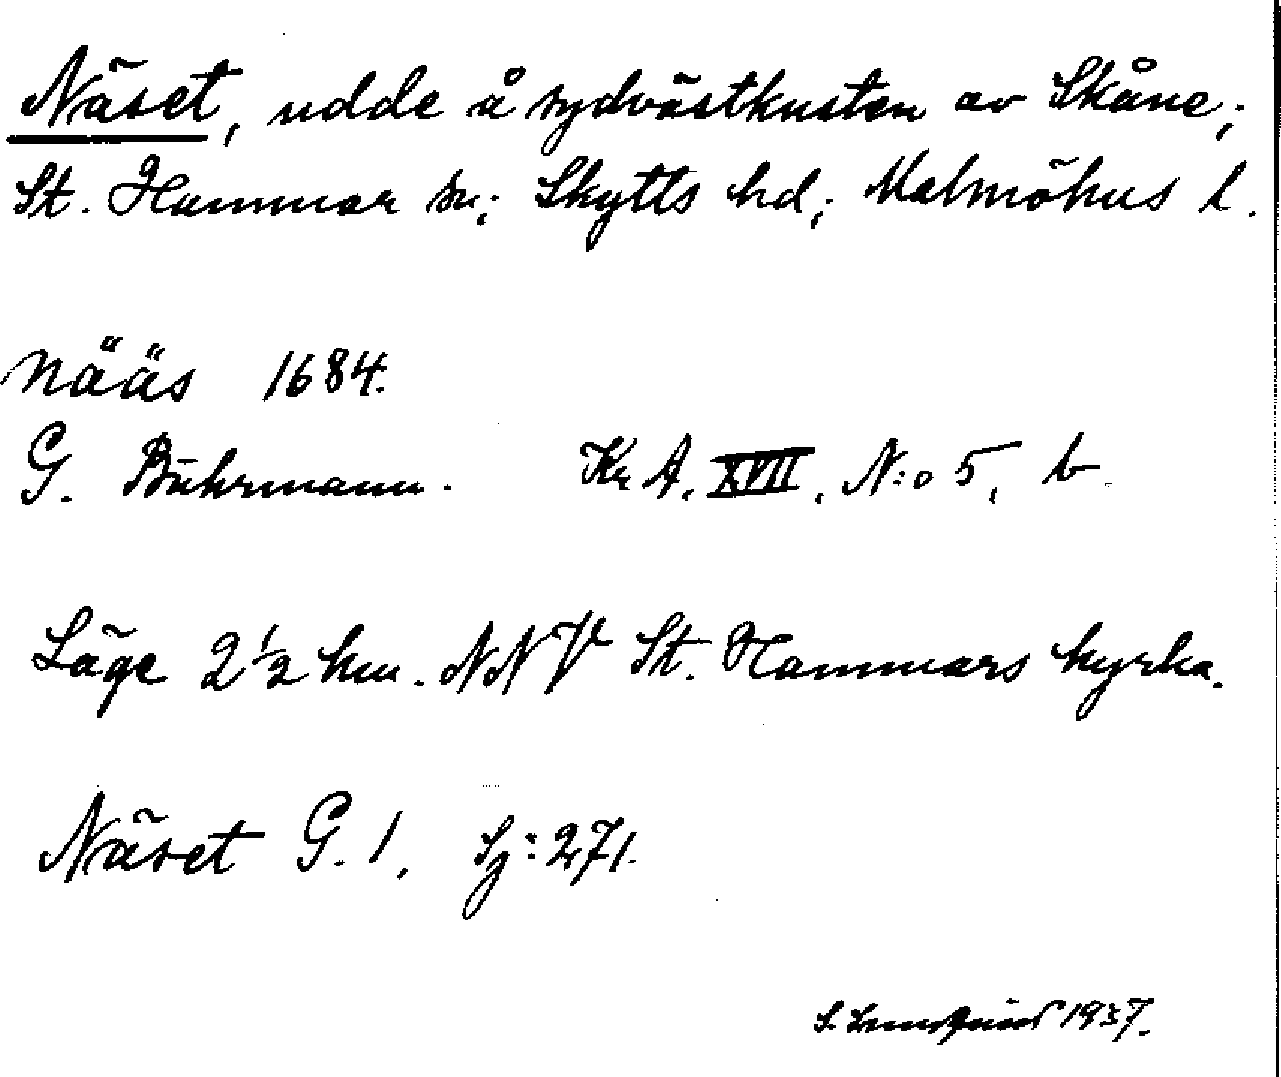 Näset, udde å sydvästkusten av Skåne;
St. Hammar sn; Skytts hd; Malmöhus l.
Nääs 1684.
G. Buhrmann. Kr A. XVII, N:o 5, b.
Läge 2 1/2 km. NNV St. Hammars kyrka.
Näset G. 1, Sj: 271.
S. 1937.